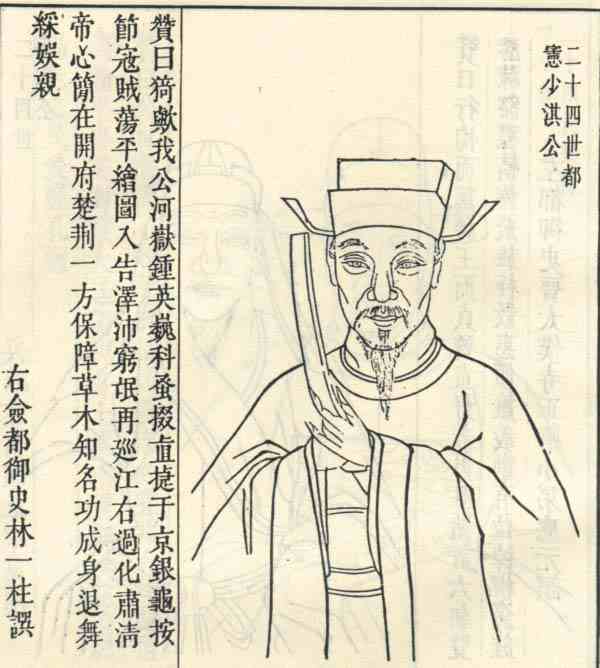 二十四世都
憲少淇公
贊曰猗歟我公河嶽鍾英巍科蚤掇直捷于京銀龜按
節寇賊蕩平繪圖入告澤沛窮氓再巡江右過化肅清
帝心簡在開府楚荆一方保障草木知名功成身退舞
綵娛親
右僉都御史林一柱譔